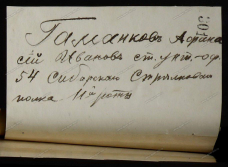 Гаманковъ Афана
сій Ивановъ ст. унт.-оф.
54 Сибирскаго Стрѣлковаго
полка 11й роты